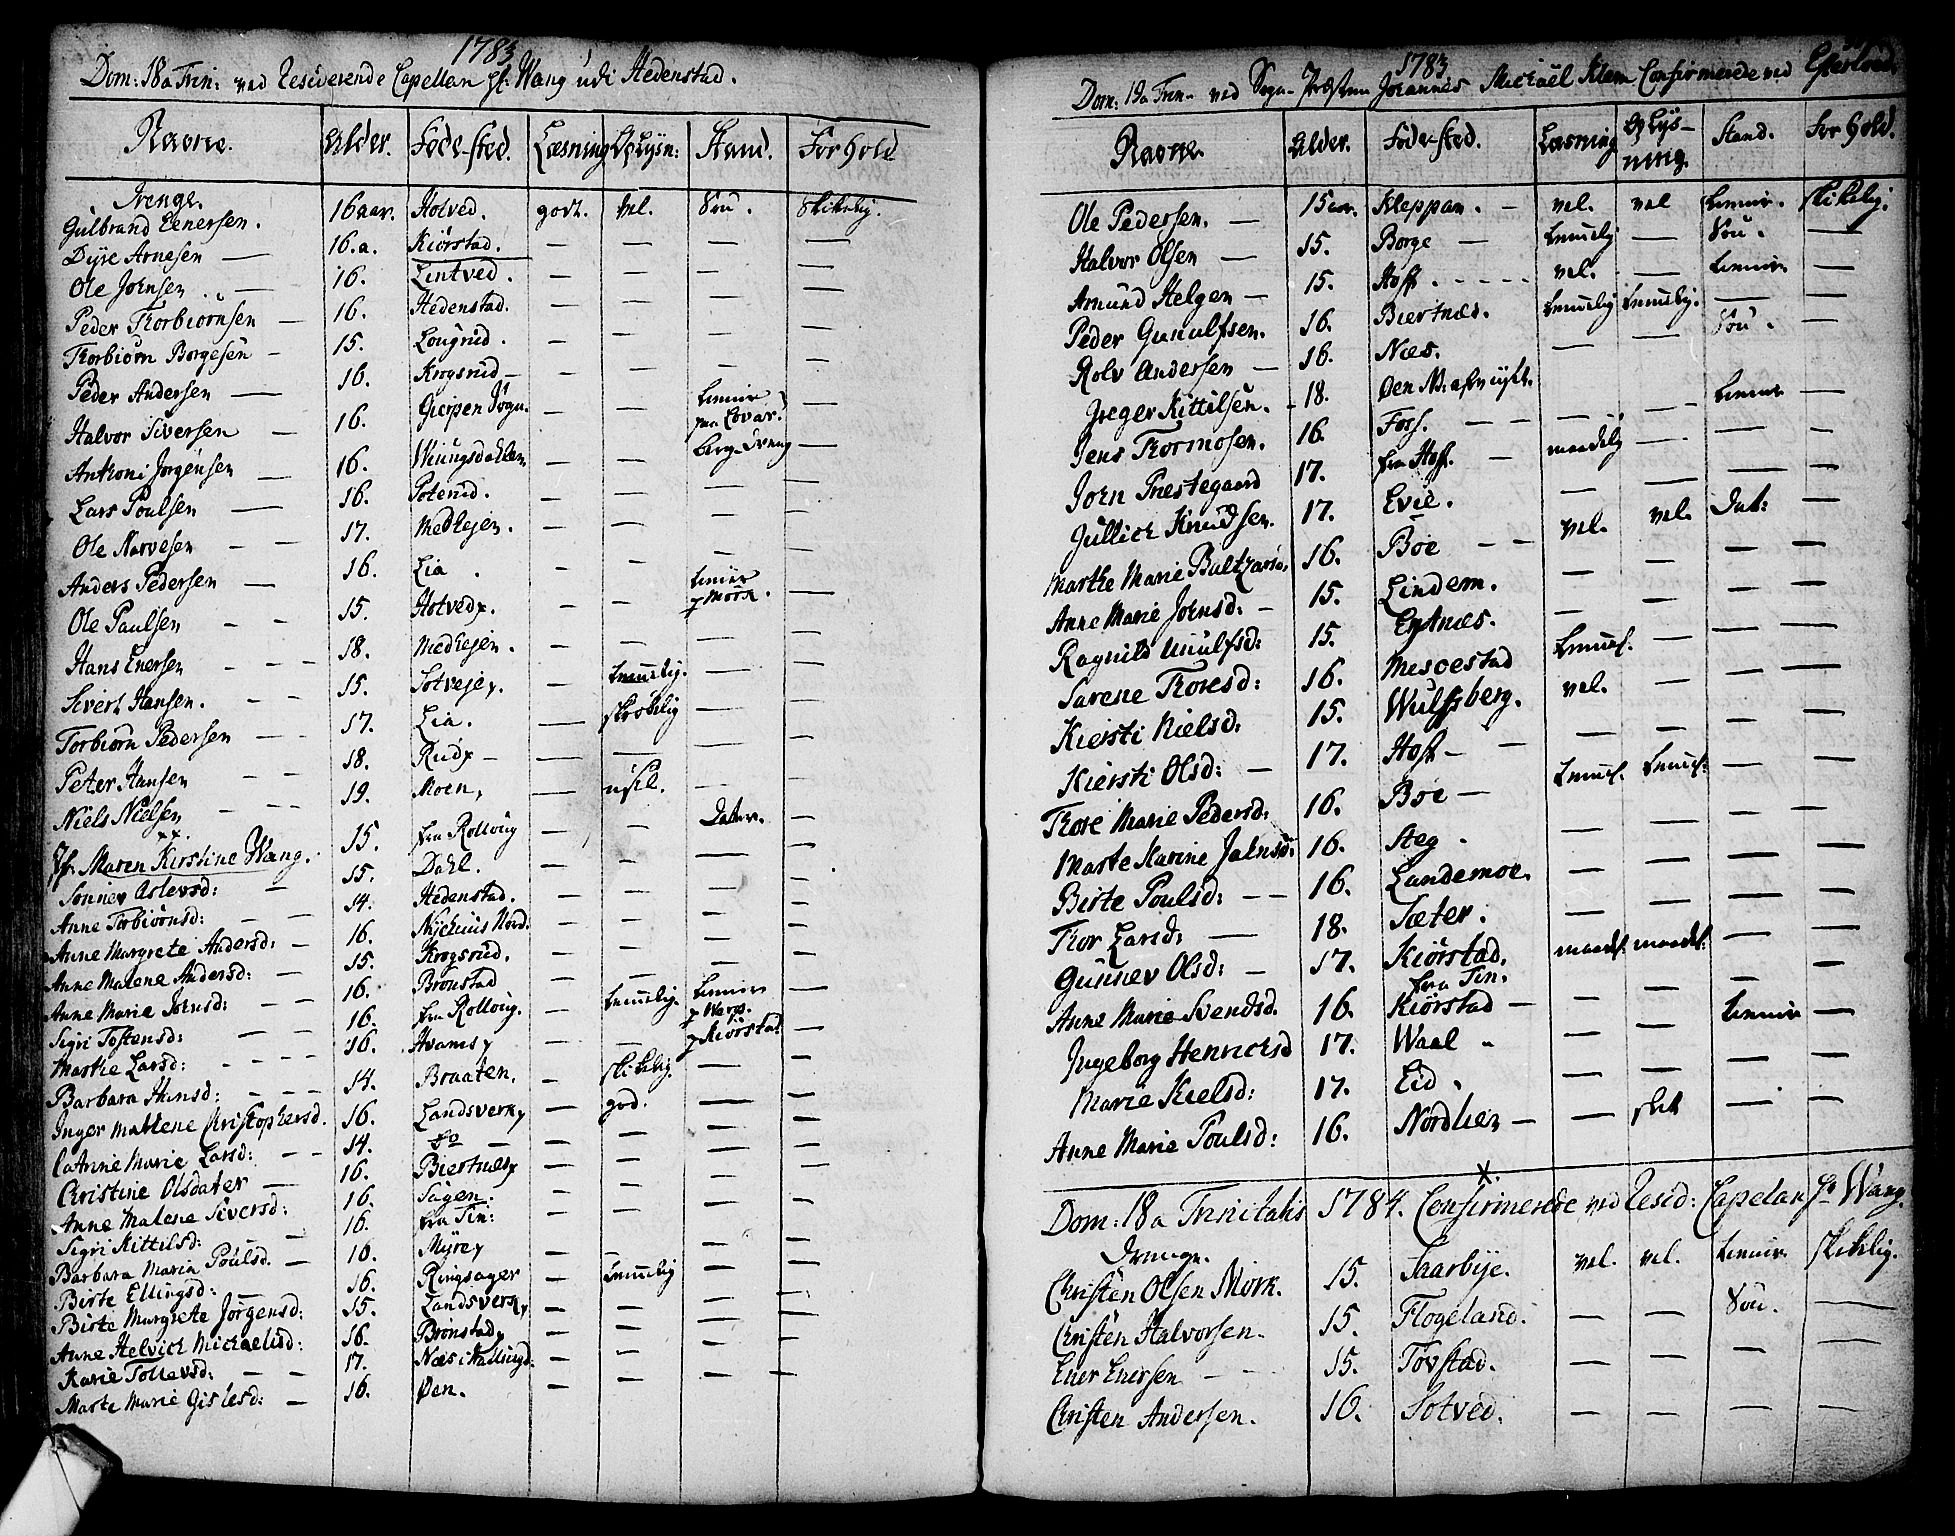 1783
Dom: 18 a Trin: ved Residerende Capellan Hr. Wang udi Hedenstad.
Navne. Alder. Føde-sted. Læsning Oplysn: Stand. Forhold
Drenge.
Gulbrand Eenersen. 16 aar. Hotved. godt. vel. Sou. Skikelig.
Dyre Arnesen — 16. a. Kiörstad. — — — —
Ole Johnsen — 16. Lintved. — — — —
Peder Thorbiörnsen — 16. Hedenstad. — — — —
Thorbiörn Borgesen — 15. Lougrud. — — — —
Peder Andersen — 16. Krogsrud — — — — —
Halvor Siversen — 16. Gierpen Sogn. — —
Anthoni Jørgensen — 16. — — —
Lars Poulsen — 16. Poterud. — — — —
Ole Narvesen — — 17. Medhejen. — — — —
Anders Pedersen — 16. Lia. — — — —
Ole Paulsen — — 15. Hotved — — —
Hans Enersen — — — 18. Medhejen. — — — —
Sivert Hansen. — — 15. Sotveje — — —
Torbiörn Pedersen — — 17. Lia. — skröbelig — —
Peter Hansen — — 18. Rud — — — —
Niels Nielsen — — — 19. Moen, — usel. — —
Jfr. Maren Kirstine Wang. 15. fra Rolloug — — Datter. —
Sonnev Aslevsd: — 15. Dahl. — — — —
Anne Torbiörnsd: — — 14. Hedenstad. — — — —
Anne Margrete Andersd: — 16. — — — —
Anne Malene Andersd: — 15. Krogsrud. — — — —
Anne Marie Johnsd: — — 16. Brönstad — — — —
Sigri Tostensd: — — 16. fra Rolloug. —
Marthe Larsd: — — — 16. — —
Barbara Hansd: — — — 14. Braaten. — skikelig. — —
Inger Mathlene Christophersd. 16. Landsverk — god. — —
Anne Marie Larsd: — — 14. do — — — — —
Christine Olsdater — 16. Biertnes — — — —
Anne Malene Siversd: 16. Sagen. — — — —
Sigri Kittilsd: — 16. fra Tin: — — — —
Barbara Maria Poulsd. — 16. Myre — — — —
Birte Ellingsd: — 16. Ringsager — — —
Birte Margrete Jørgensd: 15. Landsverk — — — —
Anne Helvich Michaelsd: 16. Brönstad — — — —
Karie Tollevsd: — — 17. Næs i Hallingd: — — — —
Marte Marie Gislesd: — 16. Øen. — — — —
1783
Dom: 19 a Trin: ved Sogne Præsten Johannes Michaël Klem Confirmerede ved Efteslöd.
Navne. Alder. Føde-sted. Læsning Oplysning. Stand. Forhold.
Ole Pedersen. — 15 aar. Kleppan. — vel. vel skikelig.
Halvor Olsen — 15. Borge — — Sou. —
Amund Helgen — 15. Hoff. vel. — —
Peder Gunulfsen. 16. Biertnæs. — —
Rolv Andersen — 16. Næs. — — Sou. —
Greger Kittilsen. — 18.
Jens Thormosen. 16. Foss. — — — —
Jorn Prestegaard 17. fra Hoff. — maadelig — — —
Jullich Knudsen. 17. Evie. — — — —
Marthe Marie Baltzars. 16. Böe — — vel. vel. Dat: —
Anne Marie Johnsd: — 15. Lindem. — — — —
Ragnild Unulfsd: 15. Entnæs. — — — —
Sarene Thoresd: 16. Mescestad — — —
Kiersti Nielsd: 15. Wulfsberg. vel. — — —
Kiersti Olsd: — 17. Hoff — — — — — —
Thore Marie Pedersd: 16. Böe — — —
Marte Karine Jahnsd: 16. Steg. — — — —
Birte Poulsd: — — 16. Landemoe. — — — —
Thor Larsd: — 18. Sæter. — — — —
Gunnev Olsd: — 17. Kiörstad. maadel: maadel: — —
fra Tin.
Anne Marie Svendsd. 16. Kiörstad — — — — —
Ingeborg Henrichsd 17. Waal — — —
Marie Kielsd: 17. Eid. — — — —
Anne Marie Poulsd: 16. Nordhen — — slet — —
X.
Dom: 18 a Trinitatis 1784. Confirmerede ved Resid: Capelan Hr. Wang.
Drenge.
Christen Olsen Mörk. 15. Saarbye. vel. vel. skikelig.
Christen Halvorsen. 15. Flogeland. — — Sou. —
Ener Enersen — — 15. Tovstad. — — — —
Christen Andersen. 16. Sotved. — — — —